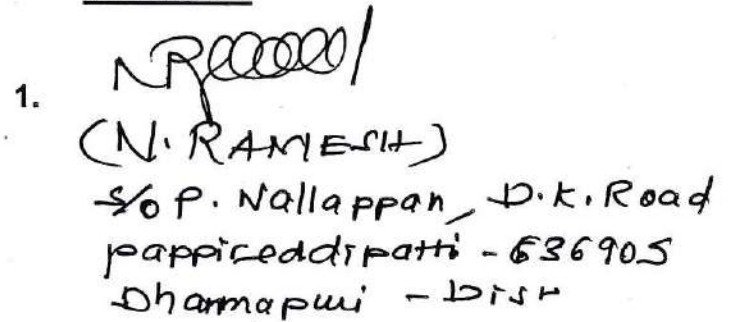 1.
(N. RAMESH)
S/o P. Nallappan, D.K. Road
pappireddipatti - 636905
Dharmapuri - Dist